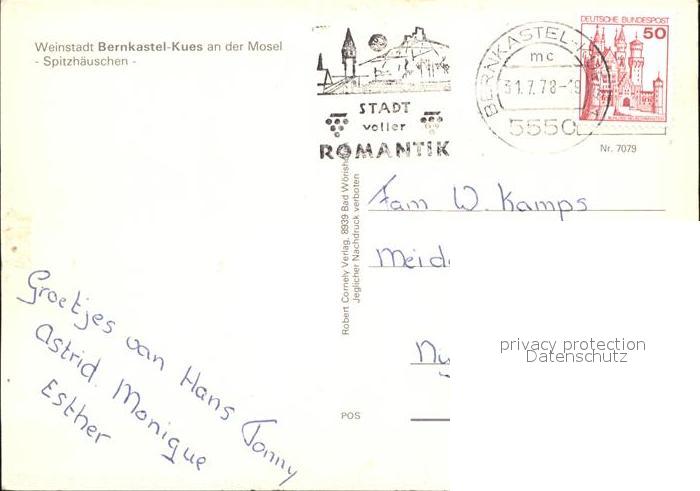 Weinstadt Bernkastel-Kues an der Mosel
- Spitzhäuschen -
STADT
voller
ROMANTIK
BERNKASTEL-
mc
31.7.78-19
5550
DEUTSCHE BUNDESPOST
50
Nr. 7079
Robert Cornely Verlag, 8939 Bad Wörish
Jeglicher Nachdruck verboten
Fam W. Kamps
Meid
Ny
privacy protection
Datenschutz
POS
Groetjes van Hans Tonny
Astrid. Monique
Esther